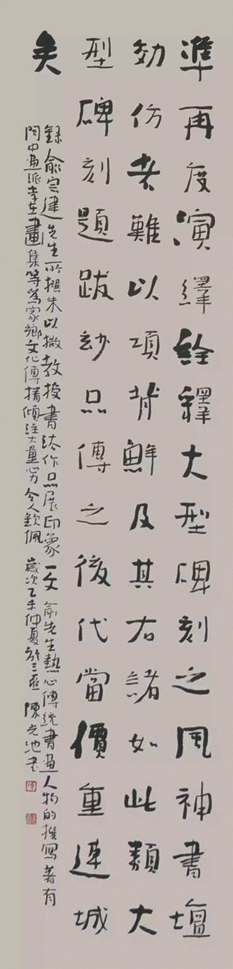 準再度演繹詮釋大型碑刻之風神書壇
効仿者難以項背鮮及其右諸如此類大
型碑刻題跋妙品傳之後代當價重連城
矣
錄俞宗建先生所撰朱以撒教授書法作品展印象一文俞先生熱心傳統書畫人物的撰寫著有
閩中画派李在畫集等為家鄉文化傳播傾注大量心力令人欽佩 歲次乙未仲夏於三亞 陳光池书